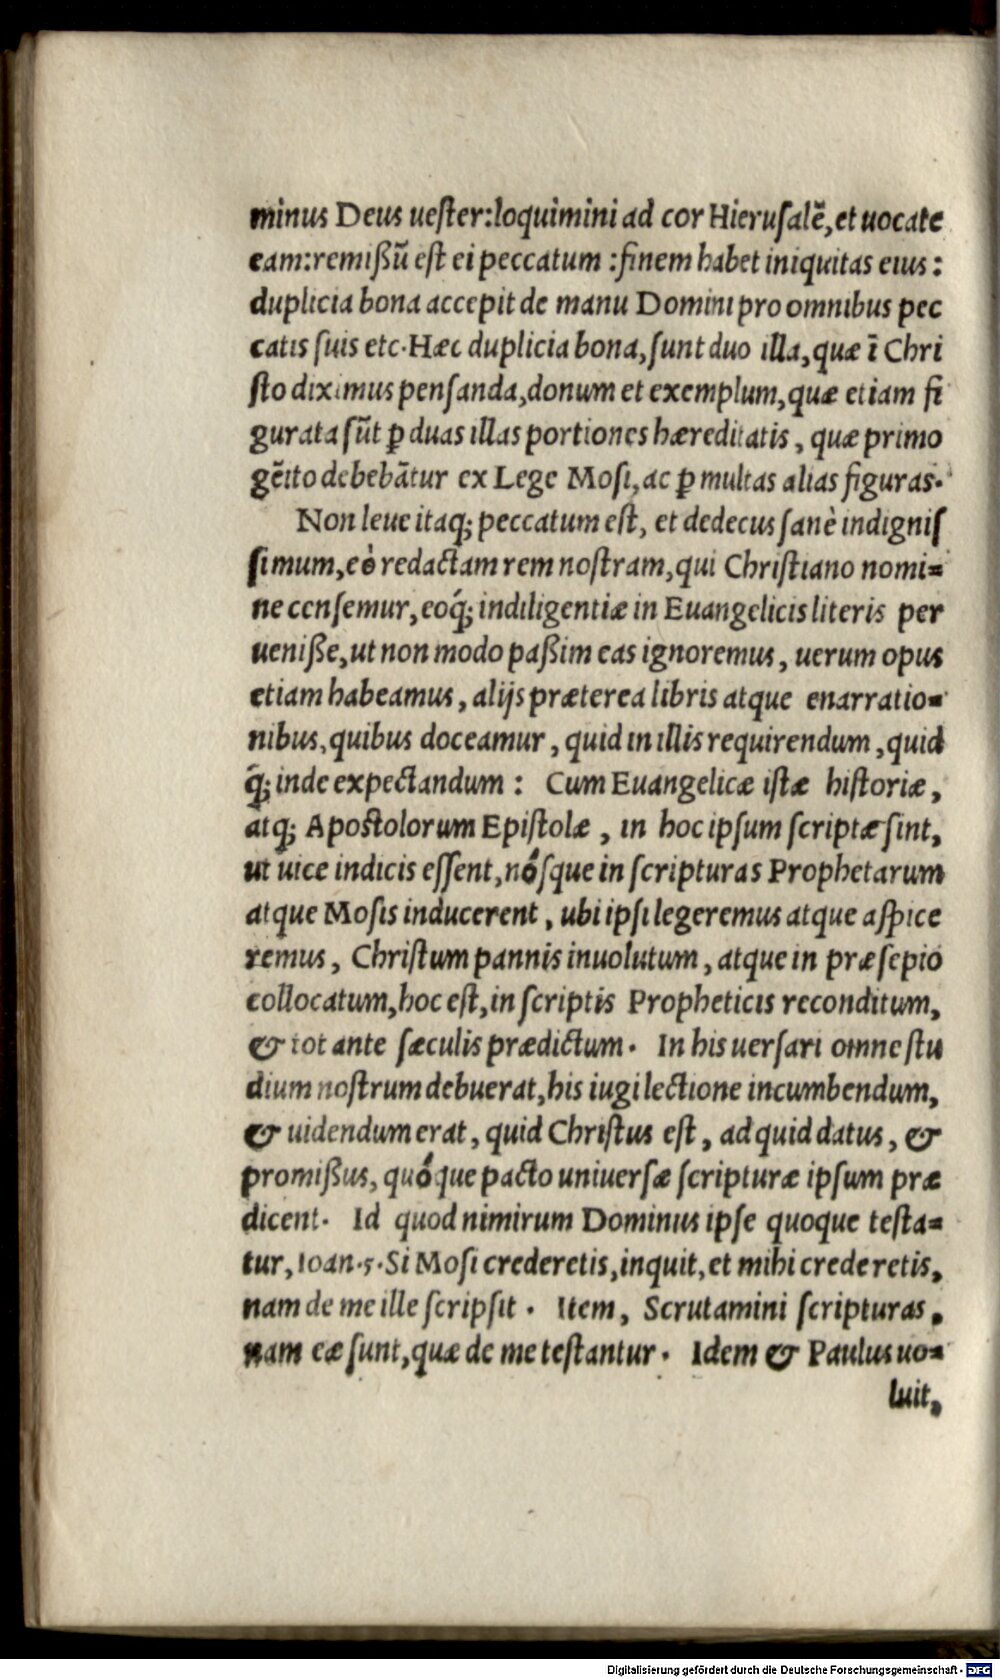 minus Deus uester:loquimini ad cor Hierusalẽ,et uocate
eam:remißũ est ei peccatum :finem habet iniquitas eius :
duplicia bona accepit de manu Domini pro omnibus pec
catis suis etc.Hæc duplicia bona,sunt duo illa,quæ ĩ Chri
sto diximus pensanda,donum et exemplum,quæ etiam fi
gurata sũt ꝑ duas illas portiones hæreditatis, quæ primo
gẽito debebãtur ex Lege Mosi,ac ꝑ multas alias figuras.
Non leue itaq; peccatum est, et dedecus sanè indignis
simum,eò redactam rem nostram,qui Christiano nomi=
ne censemur,eoq́; indiligentiæ in Euangelicis literis per
ueniße,ut non modo paßim eas ignoremus, uerum opus
etiam habeamus, alijs præterea libris atque enarratio=
nibus,quibus doceamur, quid in illis requirendum,quid
q́; inde expectandum : Cum Euangelicæ istæ historiæ,
atq; Apostolorum Epistolæ, in hoc ipsum scriptæ sint,
ut uice indicis essent,nósque in scripturas Prophetarum
atque Mosis inducerent, ubi ipsi legeremus atque aspice
remus, Christum pannis inuolutum, atque in præsepio
collocatum,hoc est,in scriptis Propheticis reconditum,
& tot ante sæculis prædictum. In his uersari omne stu
dium nostrum debuerat,his iugi lectione incumbendum,
& uidendum erat, quid Christus est, ad quid datus, &
promißus, quóque pacto uniuersæ scripturæ ipsum præ
dicent. Id quod nimirum Dominus ipse quoque testa=
tur,Ioan.5.Si Mosi crederetis,inquit,et mihi crederetis,
nam de me ille scripsit. Item, Scrutamini scripturas,
nam eæ sunt,quæ de me testantur. Idem & Paulus uo=
luit,
Digitalisierung gefördert durch die Deutsche Forschungsgemeinschaft - DFG